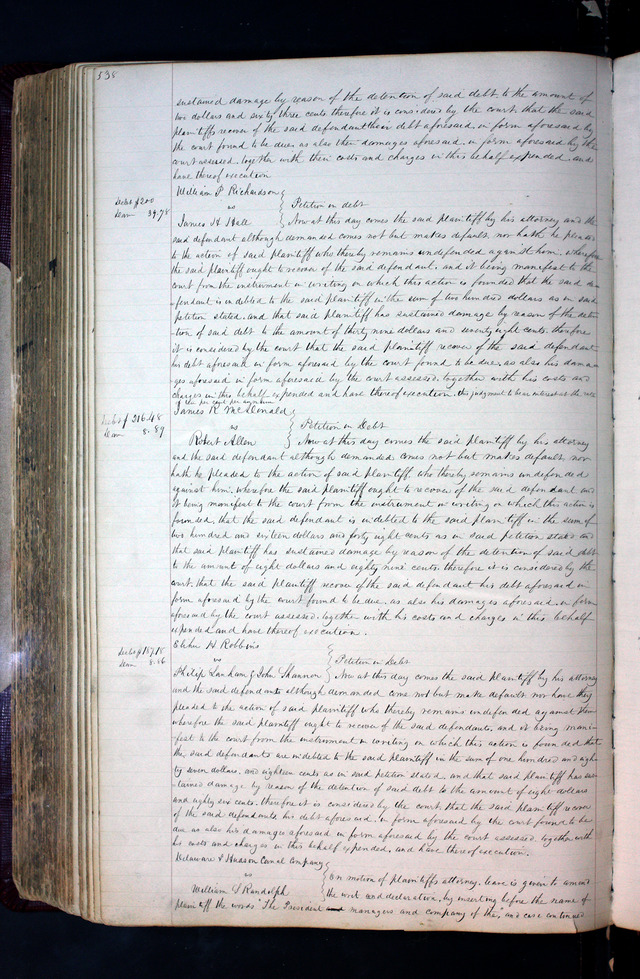 538
sustained damage by reason of the detention of said debt to the amount of
two dollars and sixty three cents therefore it is considered by the court that the said
plaintiffs recover of the said defendant their debt aforesaid in form aforesaid by
the court found to be due, as also their damages aforesaid in form aforesaid by the
court assessed, together with their costs and charges in this behalf expended, and
have thereof execution
William P Richardson
Debt $200
Dam 39.78
vs
Petition in debt
James H Hall
Now at this day comes the said plaintiff by his attorney and the
said defendant although demanded comes not but makes default, nor hath he pleaded
to the action of said plaintiff who thereby remains undefended against him, wherefore
the said plaintiff ought to recover of the said defendant, and it being manifest to the
court from the instrument in writing on which this action is founded that the said de
fendant is indebted to the said plaintiff in the sum of two hundred dollars as in said
petition stated, and that said plaintiff has sustained damage by reason of the deten
tion of said debt to the amount of thirty nine dollars and seventy eight cents, therefore
it is considered by the court that the said plaintiff recover of the said defendant
his debt aforesaid in form aforesaid by the court found to be due, as also his dama
ges aforesaid in form aforesaid by the court assessed, together with his costs and
charges in this behalf expended and have thereof execution, this judgment to bear interest at the rate
of ten per cent per annum
James R McDonald
Debt $ 216.48
Dam 8.89
vs
Petition in Debt
Robert Allen
Now at this day comes the said plaintiff by his attorney
and the said defendant although demanded comes not but makes default, nor
hath he pleaded to the action of said plaintiff, who thereby remains undefended
against him, wherefore the said plaintiff ought to recover of the said defendant and
it being manifest to the court from the instrument in writing on which this action is
founded, that the said defendant is indebted to the said plaintiff in the sum of
two hundred and sixteen dollars and forty eight cents as in said petition stated and
that said plaintiff has sustained damage by reason of the detention of said debt
to the amount of eight dollars and eighty nine cents, therefore it is considered by the
court, that the said plaintiff recover of the said defendant his debt aforesaid in
form aforesaid by the court found to be due, as also his damages aforesaid, in form
aforesaid by the court assessed, together with his costs and charges in this behalf
expended and have thereof execution.
Elihu H Robbins
Debt $ 187.18
Dam 8.86
vs
Petition in Debt
Philip Lanham & John Shannon
Now at this day comes the said plaintiff by his attorney
and the said defendants although demanded come not but make default, nor have they
pleaded to the action of said plaintiff who thereby remains undefended against them
wherefore the said plaintiff ought to recover of the said defendants, and it being mani
fest to the court from the instrument in writing on which this action is founded that
the said defendants are indebted to the said plaintiff in the sum of one hundred and eigh
ty seven dollars, and eighteen cents as in said petition stated, and that said plaintiff has sus
tained damage by reason of the detention of said debt to the amount of eight dollars
and eighty six cents, therefore it is considered by the court, that the said plaintiff recover
of the said defendants his debt aforesaid, in form aforesaid by the court found to be
due as also his damages aforesaid in form aforesaid by the court assessed, together with
his costs and charges in this behalf expended, and have thereof execution.
Delaware & Hudson Canal Company
vs
On motion of plaintiffs attorney, leave is given to amend
William S Randolph
the writ and declaration, by inserting before the name of
plaintiff the words "The President and managers and company of the", and case continued